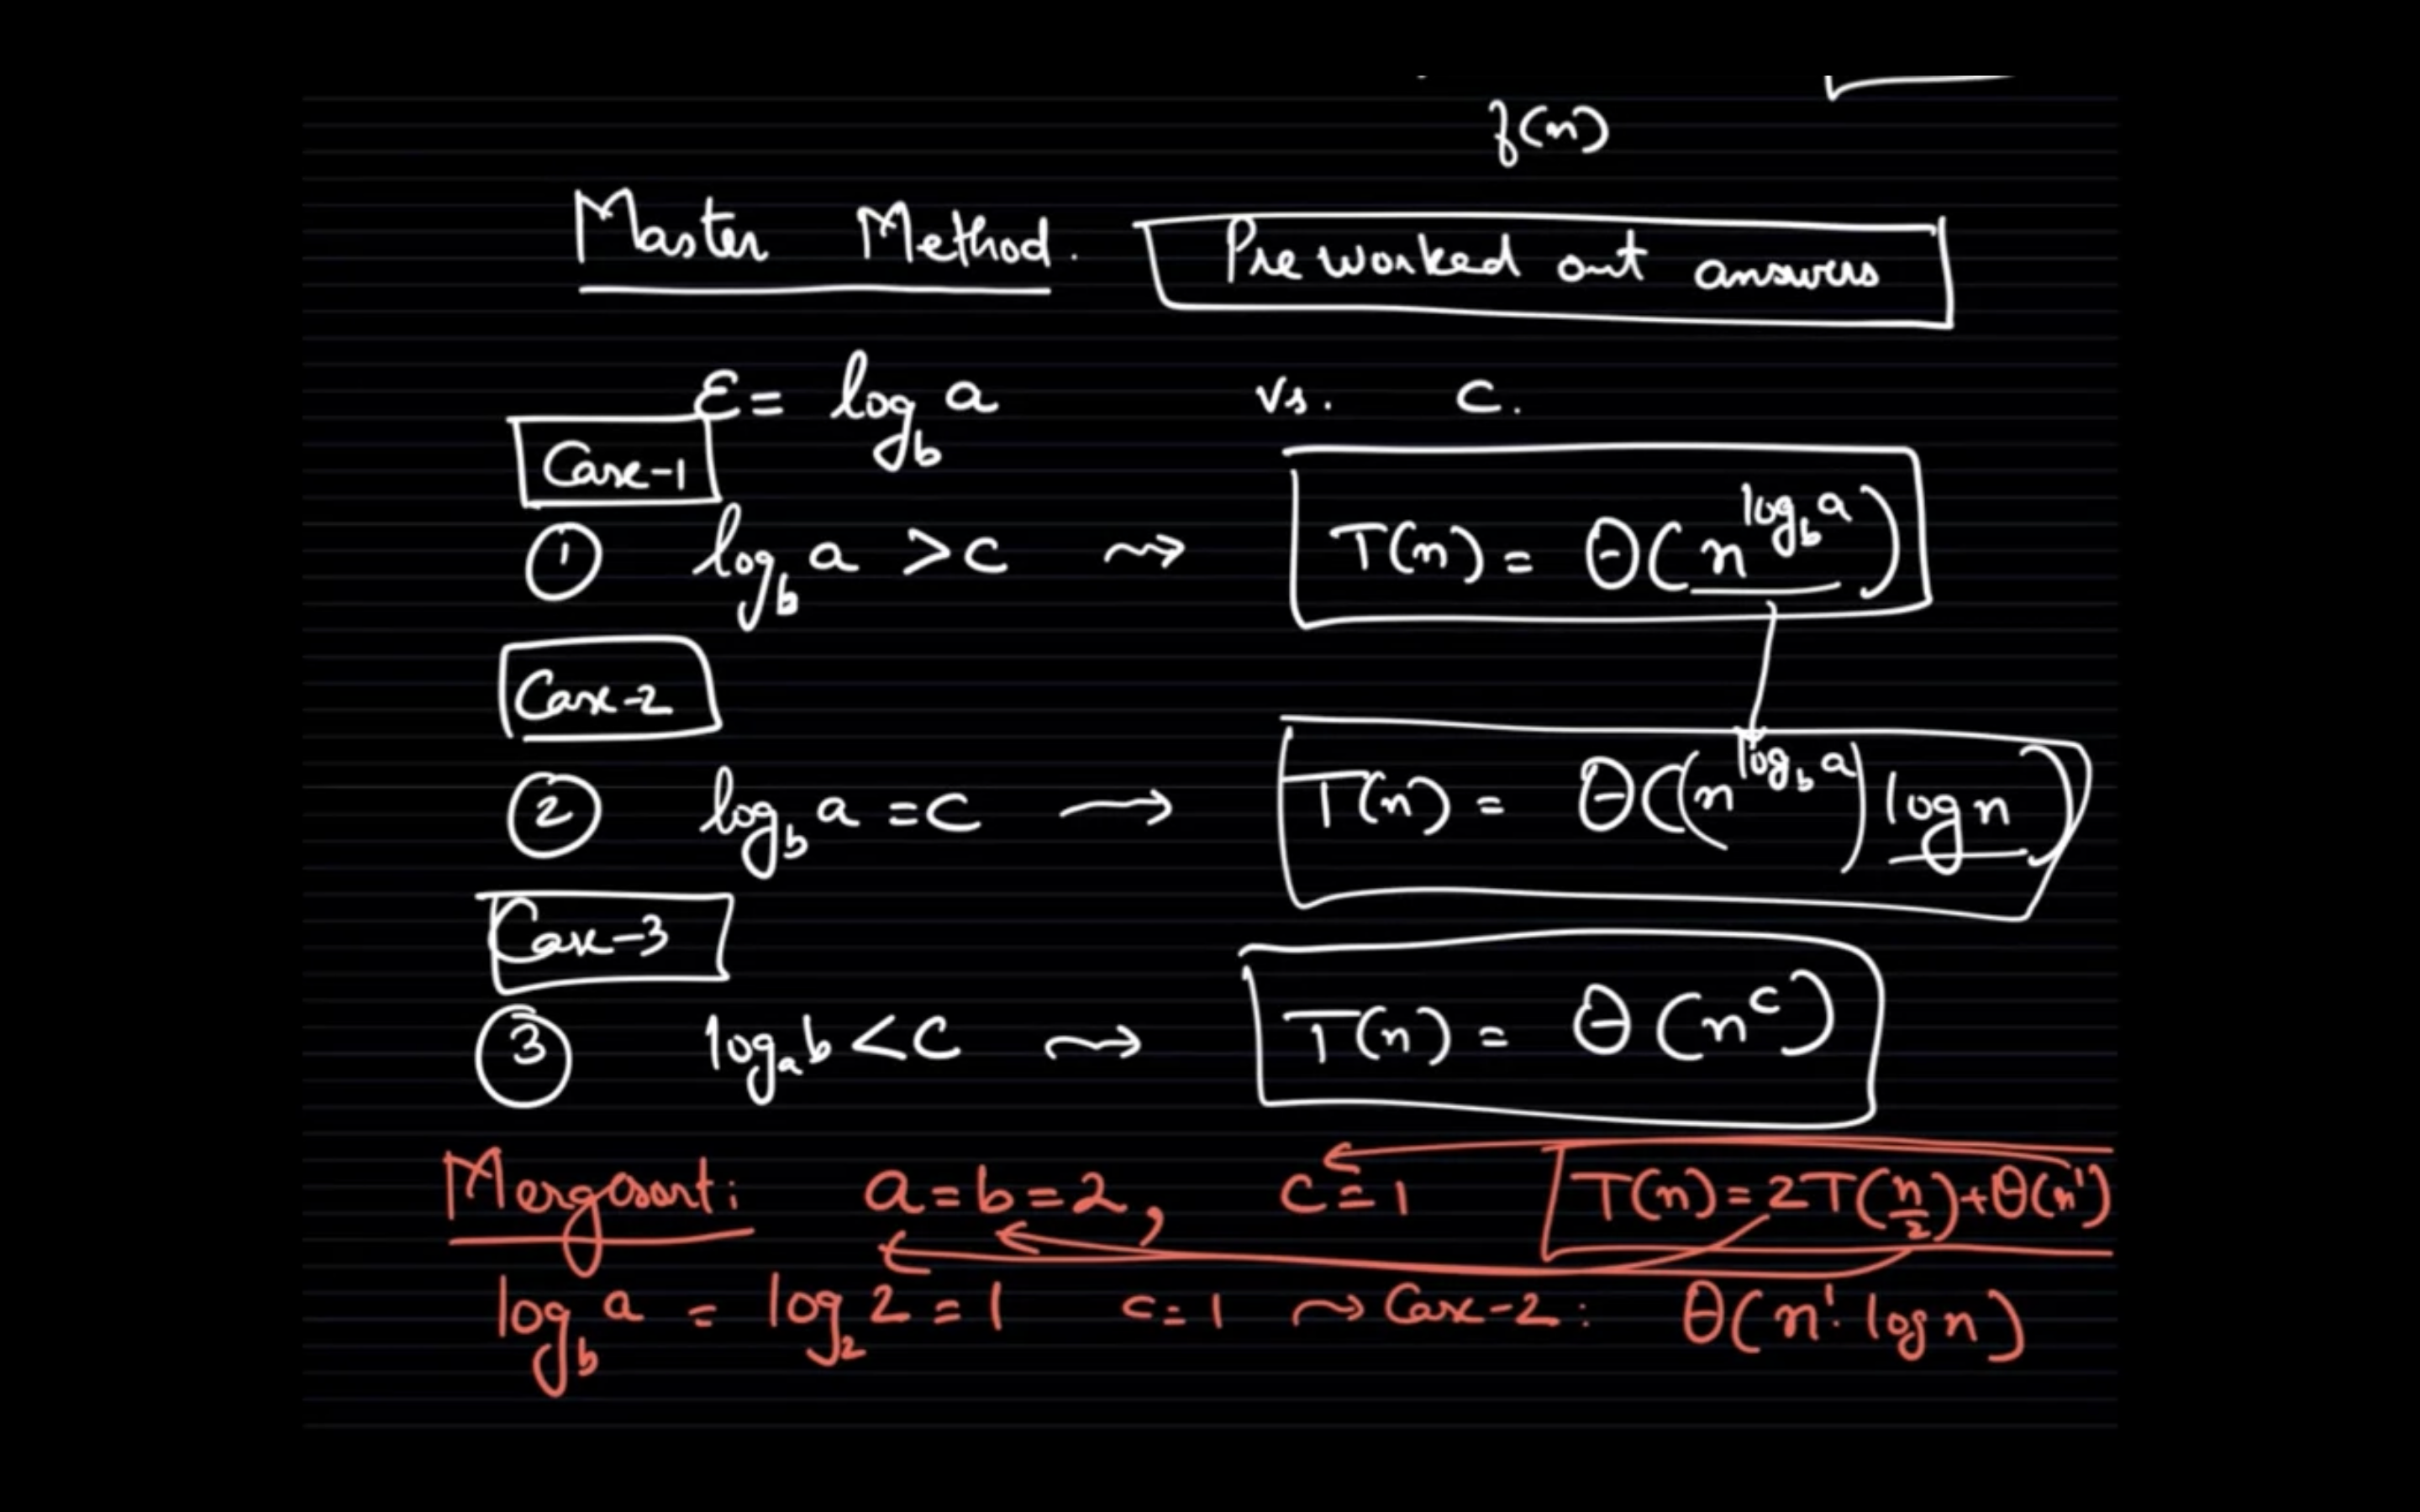 f(n)
Master Method. Pre worked out answers
ε = log_b a vs. c.
Case-1
① log_b a > c ⇝ T(n) = Θ(n^{log_b a})
Case-2
② log_b a = c → T(n) = Θ((n^{log_b a}) log n)
Case-3
③ log_a b < c ⇝ T(n) = Θ(n^c)
Mergesort: a = b = 2, c = 1 T(n) = 2T(n/2) + Θ(n^1)
log_b a = log_2 2 = 1 c = 1 ⇝ Case-2: Θ(n^1. log n)